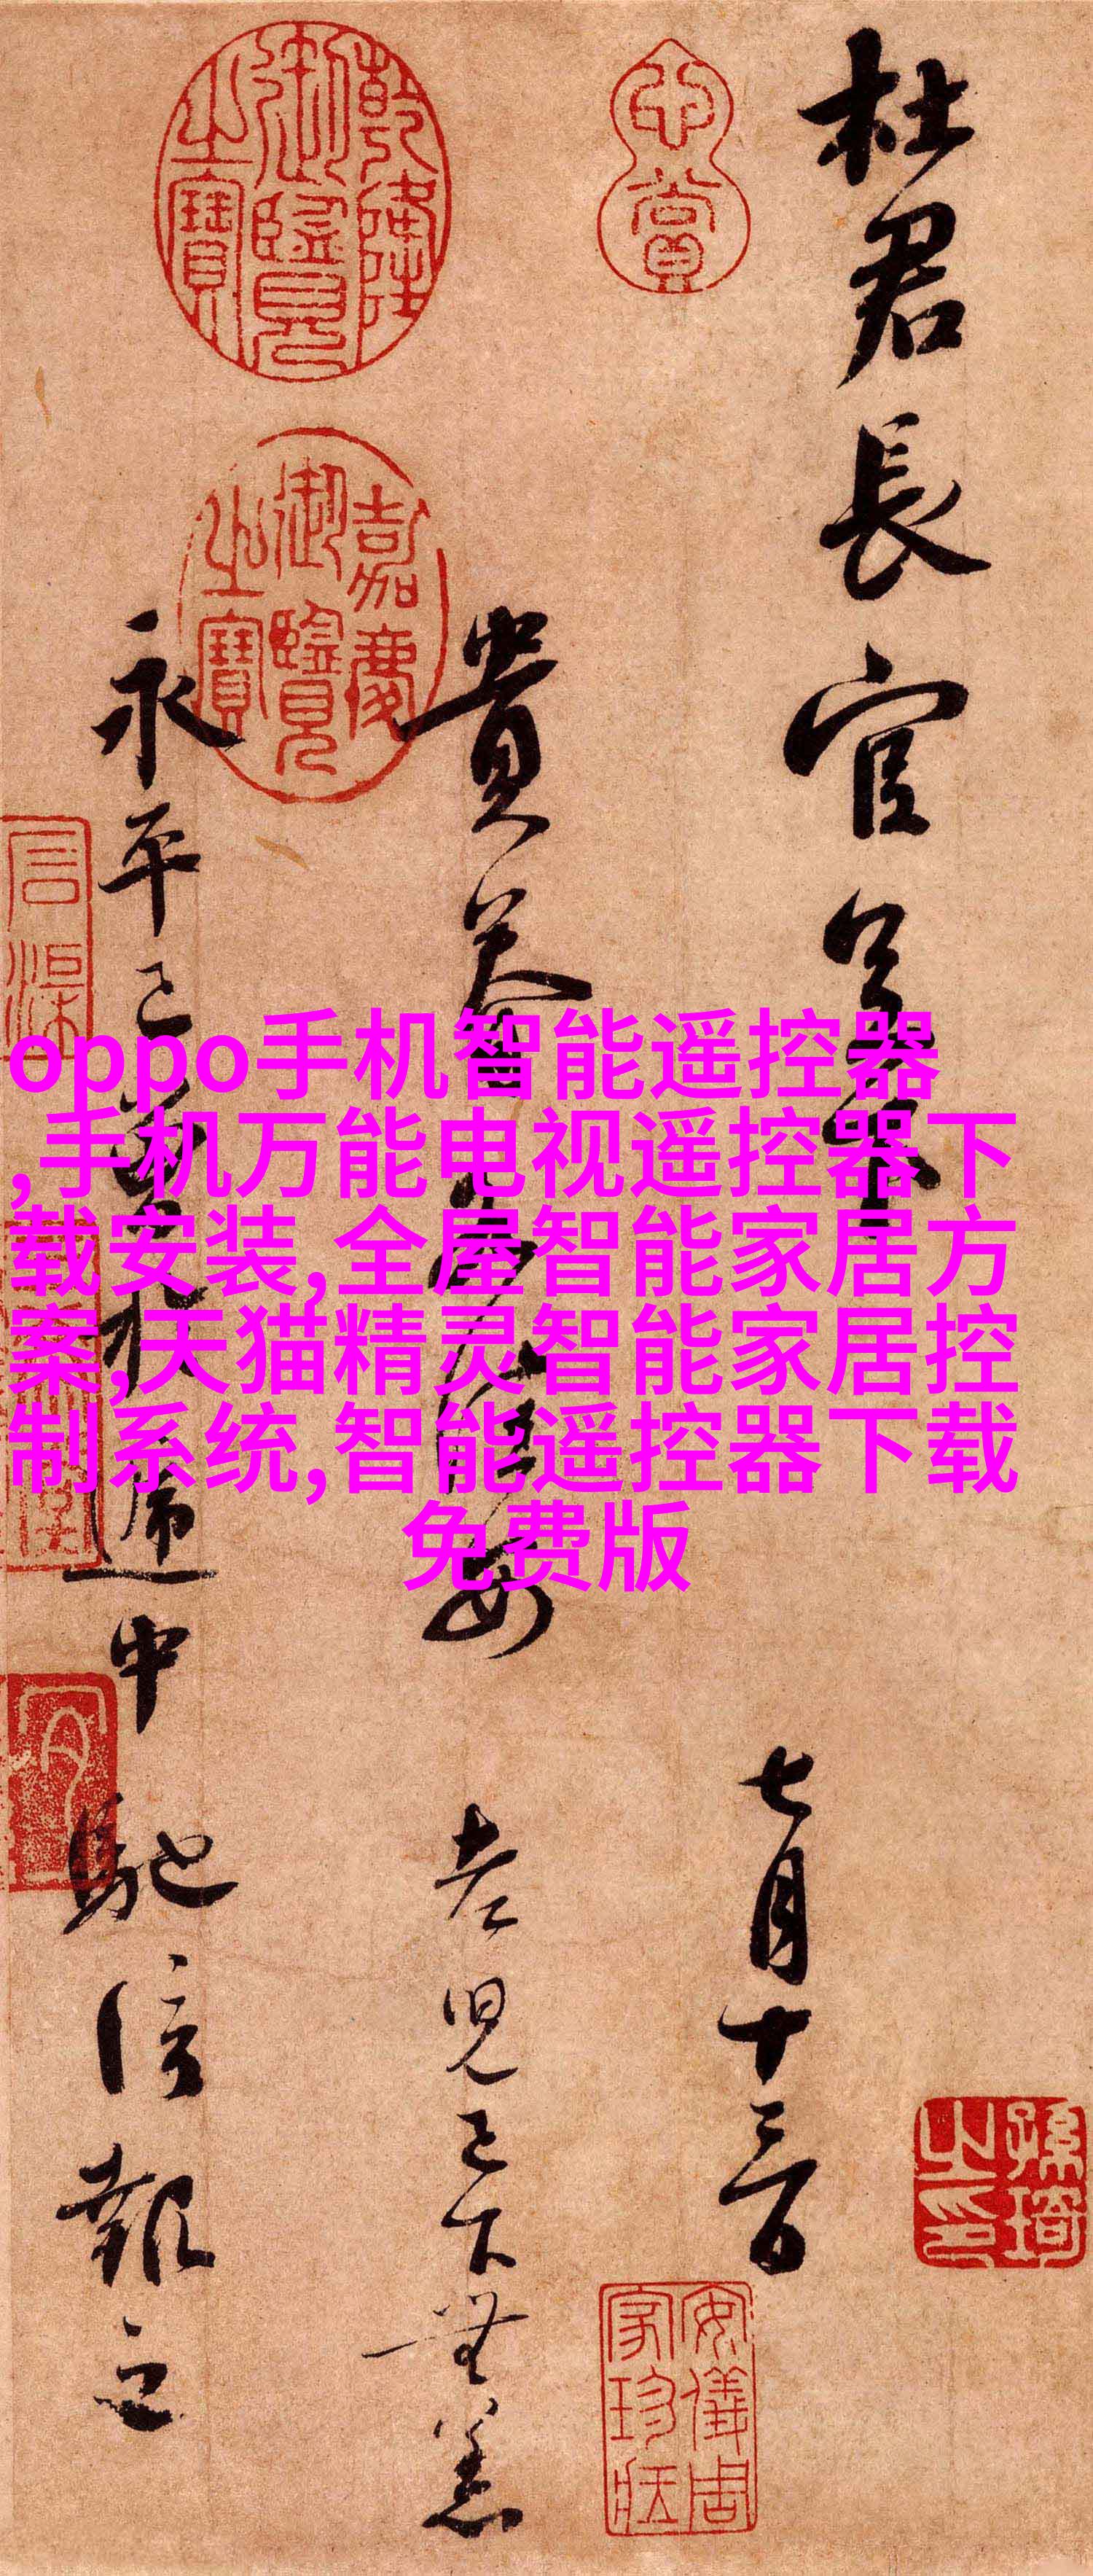 杜君長官尊
七月十三日
貴
安
老兒已下無恙
永平已
遞中
馳信報之
乾隆御覽之寶
嘉慶御覽之寶
心賞
孫琦之印
安儀周家珍藏
oppo手机智能遥控器
,手机万能电视遥控器下
载安装,全屋智能家居方
案,天猫精灵智能家居控
制系统,智能遥控器下载
免费版